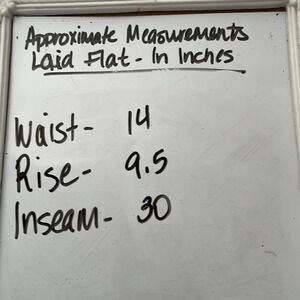 Approximate Measurements
Laid Flat - In Inches
Waist - 14
Rise - 9.5
Inseam - 30